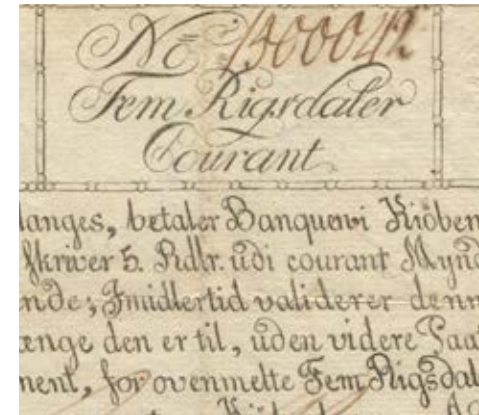 No 1300042
Fem Rigsdaler
Courant
langes, betaler Banquen i Kiöben
skriver 5. Rdlr. üdi courant Mynd
nde; Imidlertid validerer denn
ænge den er til, üden videre Paa
ment, for ovenmelte Fem Rigsdal